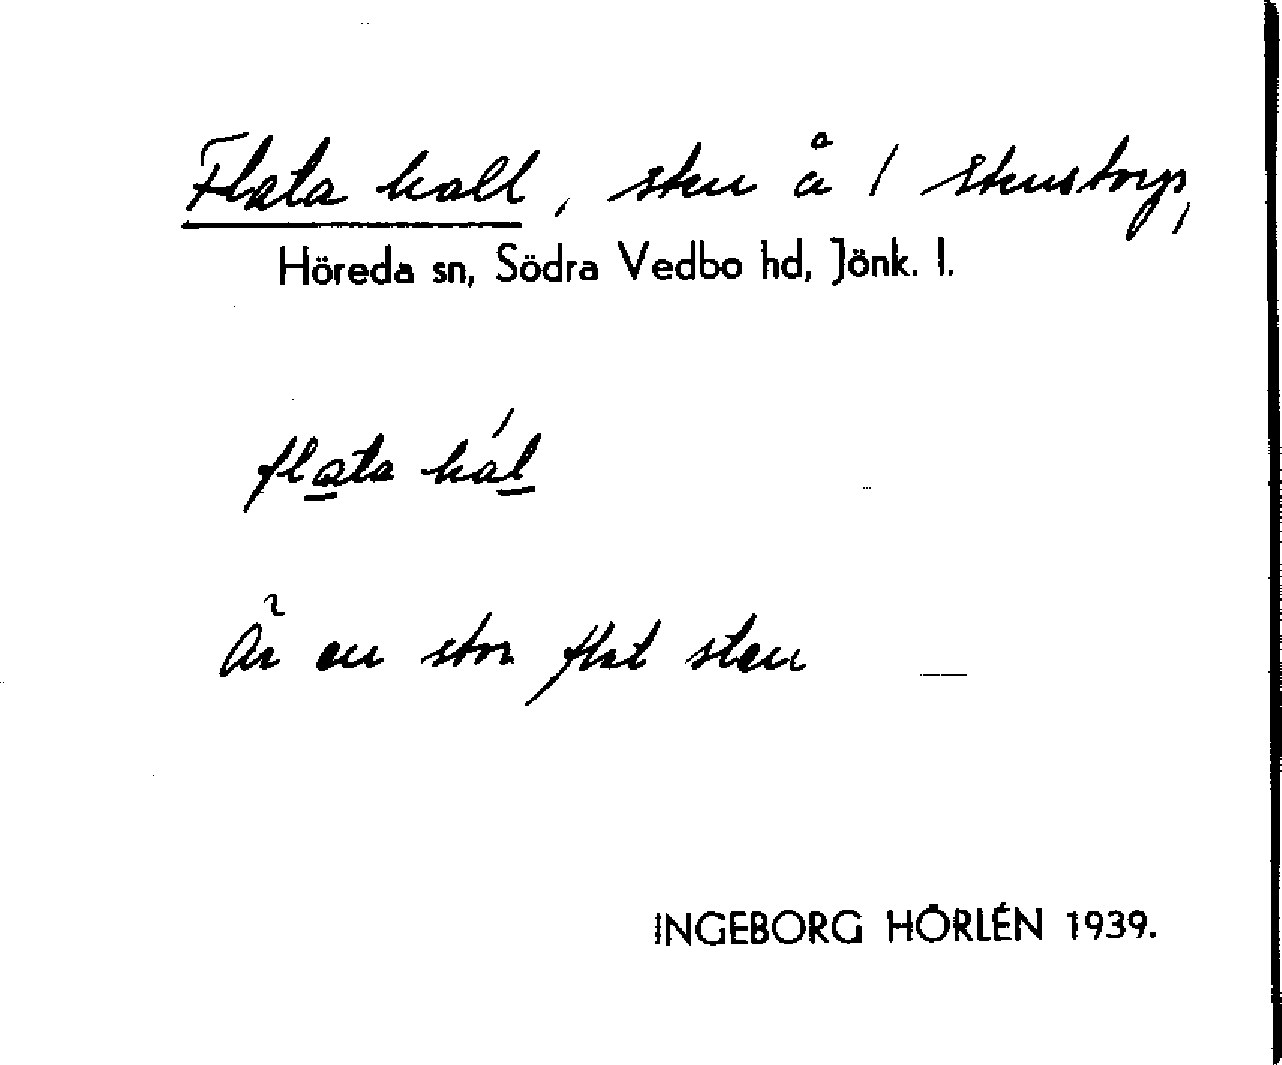 Flata hall, sten å 1 Stenstorp,
Höreda sn, Södra Vedbo hd, Jönk. l.
flata hál
Är en stor flat sten
INGEBORG HÖRLÉN 1939.